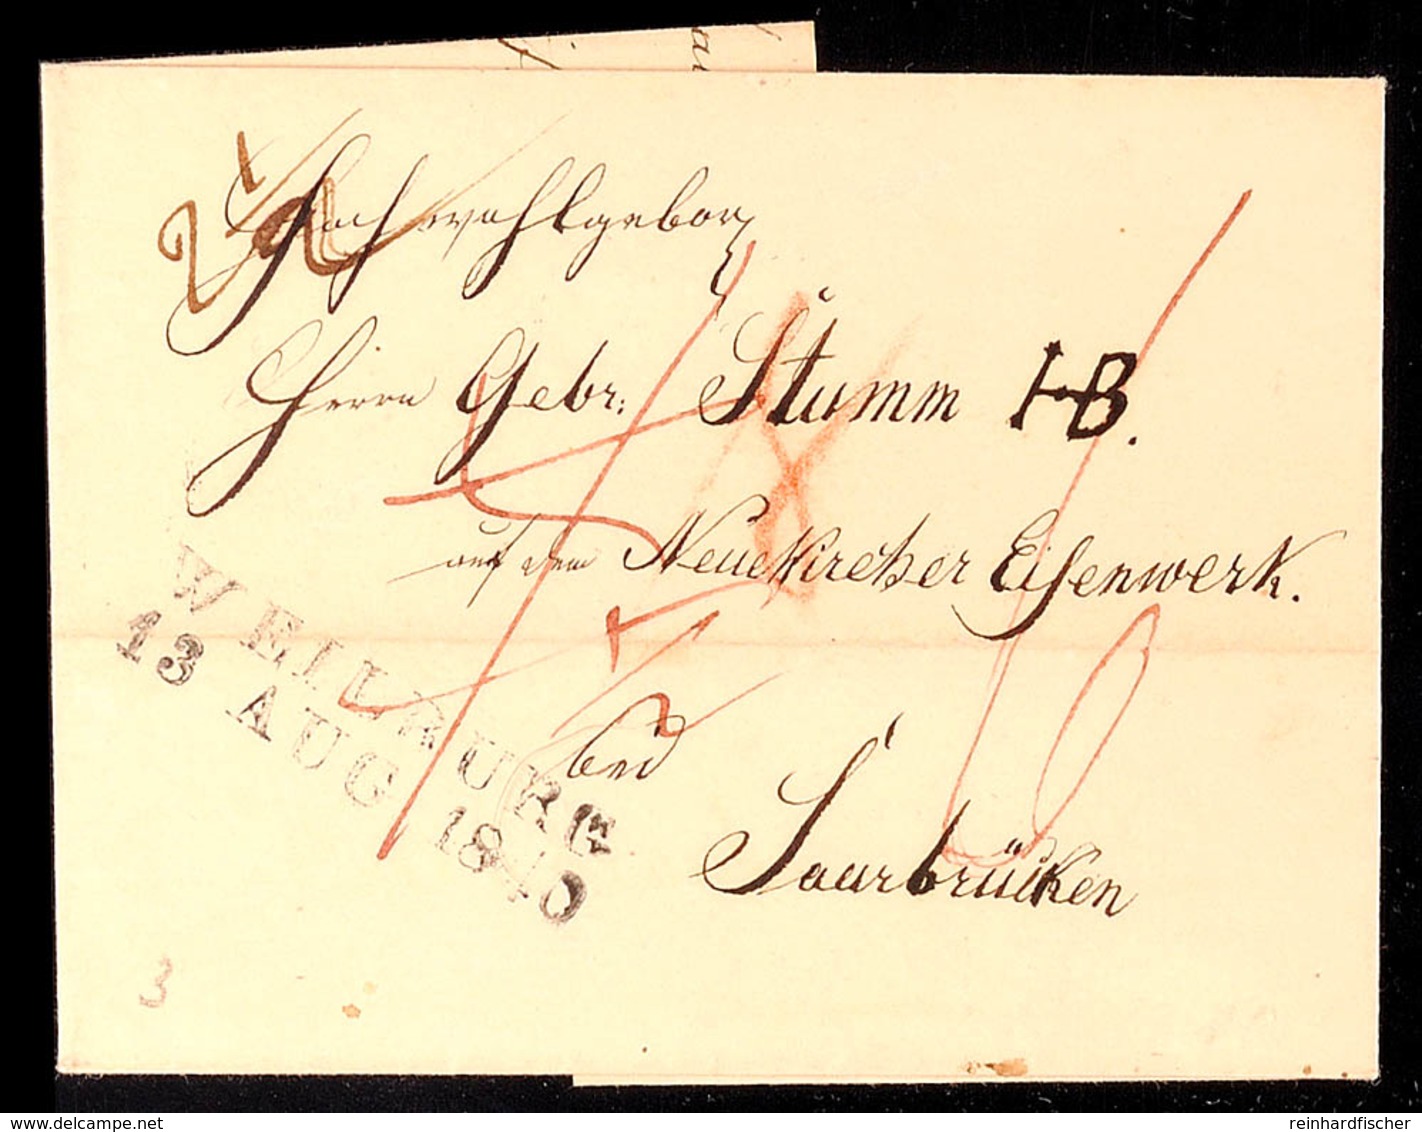 Hochwohlgebor
Herrn Gebr: Stumm HB.
auf dem Neuekircher Eisenwerk.
bei
Saarbrücken
WEILBURG
13 AUG 1840
3
www.delcampe.net
reinhardfischer